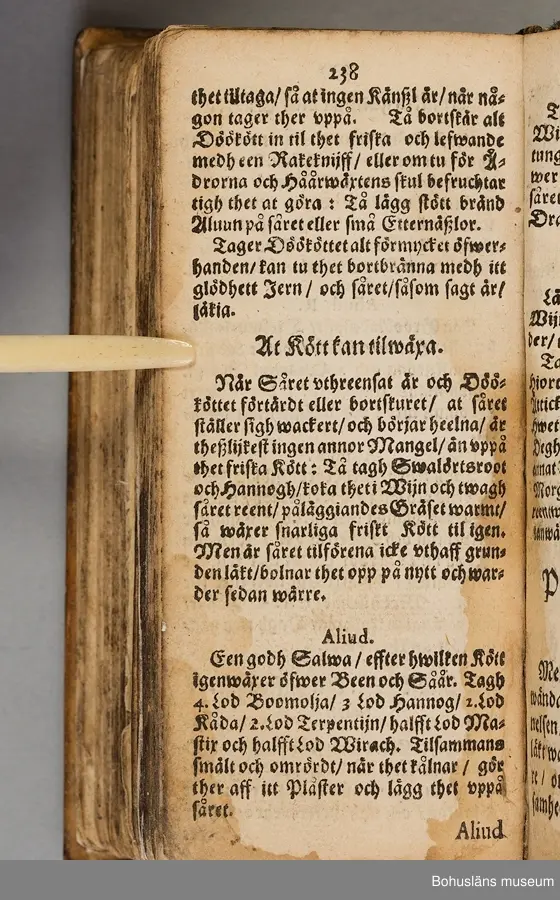 238
thet tiltaga/ så at ingen Känßl är/ när nå-
gon tager ther vppå. Tå bortskär alt
Döökött in til thet friska och lefwande
medh een Rakeknijff/ eller om tu för Å-
drorna och Håårwäxtens skul befruchtar
tigh thet at göra : Tå lägg stött bränd
Aluun på såret eller små Etternäßlor.
Tager Döököttet alt förmycket öfwer-
handen/ kan tu thet bortbränna medh itt
glödhett Jern / och såret/ såsom sagt är/
läkia.
At Kött kan tilwäxa.
När Såret vthreensat är och Döö-
köttet förtärdt eller bortskuret/ at såret
ställer sigh wackert/ och börjar heelna/ är
theßlijkest ingen annor Mangel/ än vppå
thet friska Kött : Tå tagh Swalörtsroot
och Hannogh/ koka thet i Wijn och twagh
såret reent/ påläggiandes Gräset warmt/
så wäxer snarliga friskt Kött til igen.
Men är såret tilförena icke vthaff grun-
den läkt/ bolnar thet opp på nytt och war-
der sedan wärre.
Aliud.
Een godh Salwa / effter hwilken Kött
igenwäxer öfwer Been och Såår. Tagh
4. Lod Boomolja/ 3 Lod Hannog/ 2. Lod
Kåda/ 2. Lod Terpentijn/ halfft Lod Ma-
stix och halfft Lod Wirach. Tilsammans
smält och omrördt/ när thet kålnar / gör
ther aff itt Plåster och lägg thet vppå
såret.
Aliud
Bohusläns museum